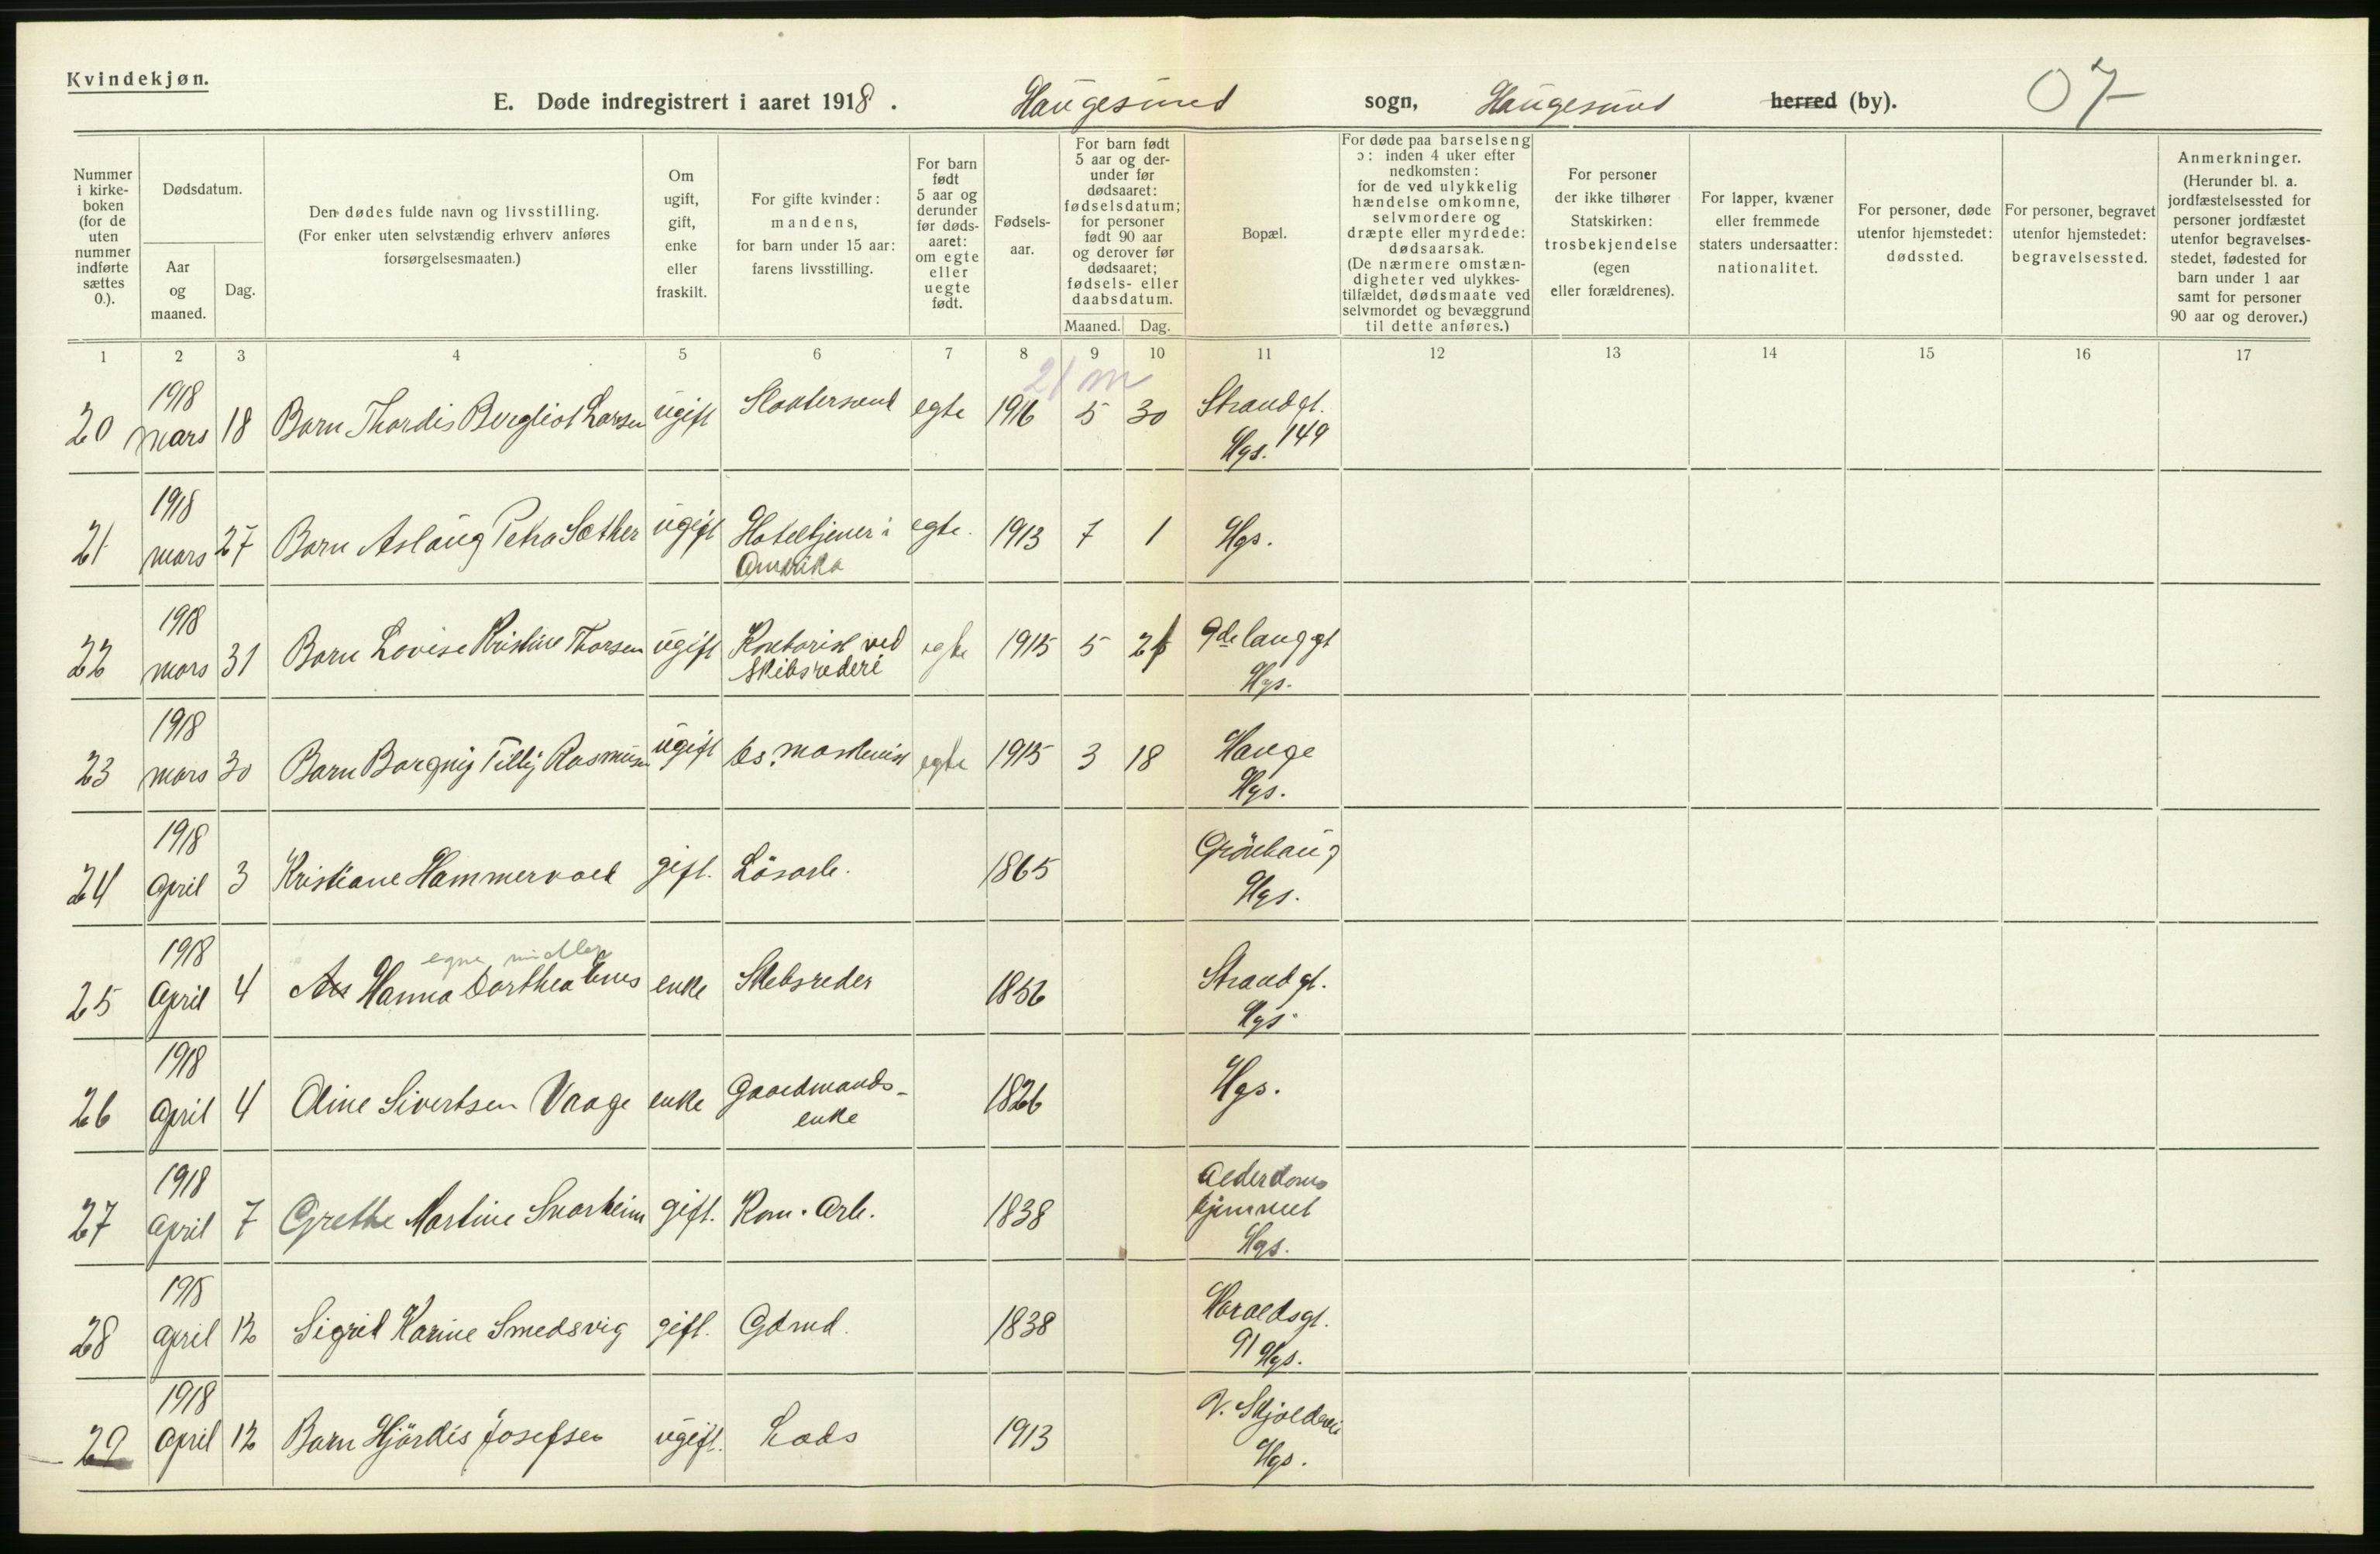 Kvindekjøn.
E. Døde indregistrert i aaret 1918. Haugesund sogn, Haugesund herred (by). 07
Nummer
i kirke-
boken
(for de
uten
nummer
indførte
sættes
0.).
Dødsdatum.
Aar
og
maaned.
Dag.
Den dødes fulde navn og livsstilling.
(For enker uten selvstændig erhverv anføres
forsørgelsesmaaten.)
Om
ugift,
gift,
enke
eller
fraskilt.
For gifte kvinder:
mandens,
for barn under 15 aar:
farens livsstilling.
For barn
født
5 aar og
derunder
før døds-
aaret:
om egte
eller
uegte
født.
Fødsels-
aar.
For barn født
5 aar og der-
under før
dødsaaret:
fødselsdatum;
for personer
født 90 aar
og derover før
dødsaaret;
fødsels- eller
daabsdatum.
Maaned. Dag.
Bopæl.
For døde paa barselseng
ɔ: inden 4 uker efter
nedkomsten:
for de ved ulykkelig
hændelse omkomne,
selvmordere og
dræpte eller myrdede:
dødsaarsak.
(De nærmere omstæn-
digheter ved ulykkes-
tilfældet, dødsmaate ved
selvmordet og bevæggrund
til dette anføres.)
For personer
der ikke tilhører
Statskirken:
trosbekjendelse
(egen
eller forældrenes).
For lapper, kvæner
eller fremmede
staters undersaatter:
nationalitet.
For personer, døde
utenfor hjemstedet:
dødssted.
For personer, begravet
utenfor hjemstedet:
begravelsessted.
Anmerkninger.
(Herunder bl. a.
jordfæstelsessted for
personer jordfæstet
utenfor begravelses-
stedet, fødested for
barn under 1 aar
samt for personer
90 aar og derover.)
1 2 3 4 5 6 7 8 9 10 11 12 13 14 15 16 17
21 m
1918
20 mars 18 Barn Thordis Bergliot Larsen ugift egte 1916 5 30 Strandgt.
149
Hgs.
1918
21 mars 27 Barn Aslaug Petra Sæther ugift Hoteltjener i egte. 1913 7 1 Hgs.
Amerika
1918
22 mars 31 Barn Lovise Kristine Thorsen ugift Kontorist ved egte 1915 5 9de langgt
Skibsrederi Hgs.
1918
23 mars 30 Barn Borgny Tilly Rasmusen ugift Ds. Maskinist egte 1915 3 18 Hauge
Hgs.
1918
24 April 3 Kristiane Hammervold gift. Lösarb. 1865 Grönhaug
Hgs.
1918 egne midler
25 April 4 Hanna Dorthea enke Skibsreder 1856 Strandgt.
Hgs.
1918
26 April 4 Oline Sivertsen Vaage enke Gaardmands- 1826 Hgs.
enke
1918
27 April 7 Grethe Martine Snorheim gift. Kom. Arb. 1838 Alderdoms
hjemmet
Hgs.
1918
28 April 12 Sigrid Karine Smedsvig gift. Gdmd. 1838 Haraldsgt.
91 Hgs.
1918
29 April 12 Barn Hjördis Josefsen ugift. Lods 1913 V. Skjoldevei
Hgs.